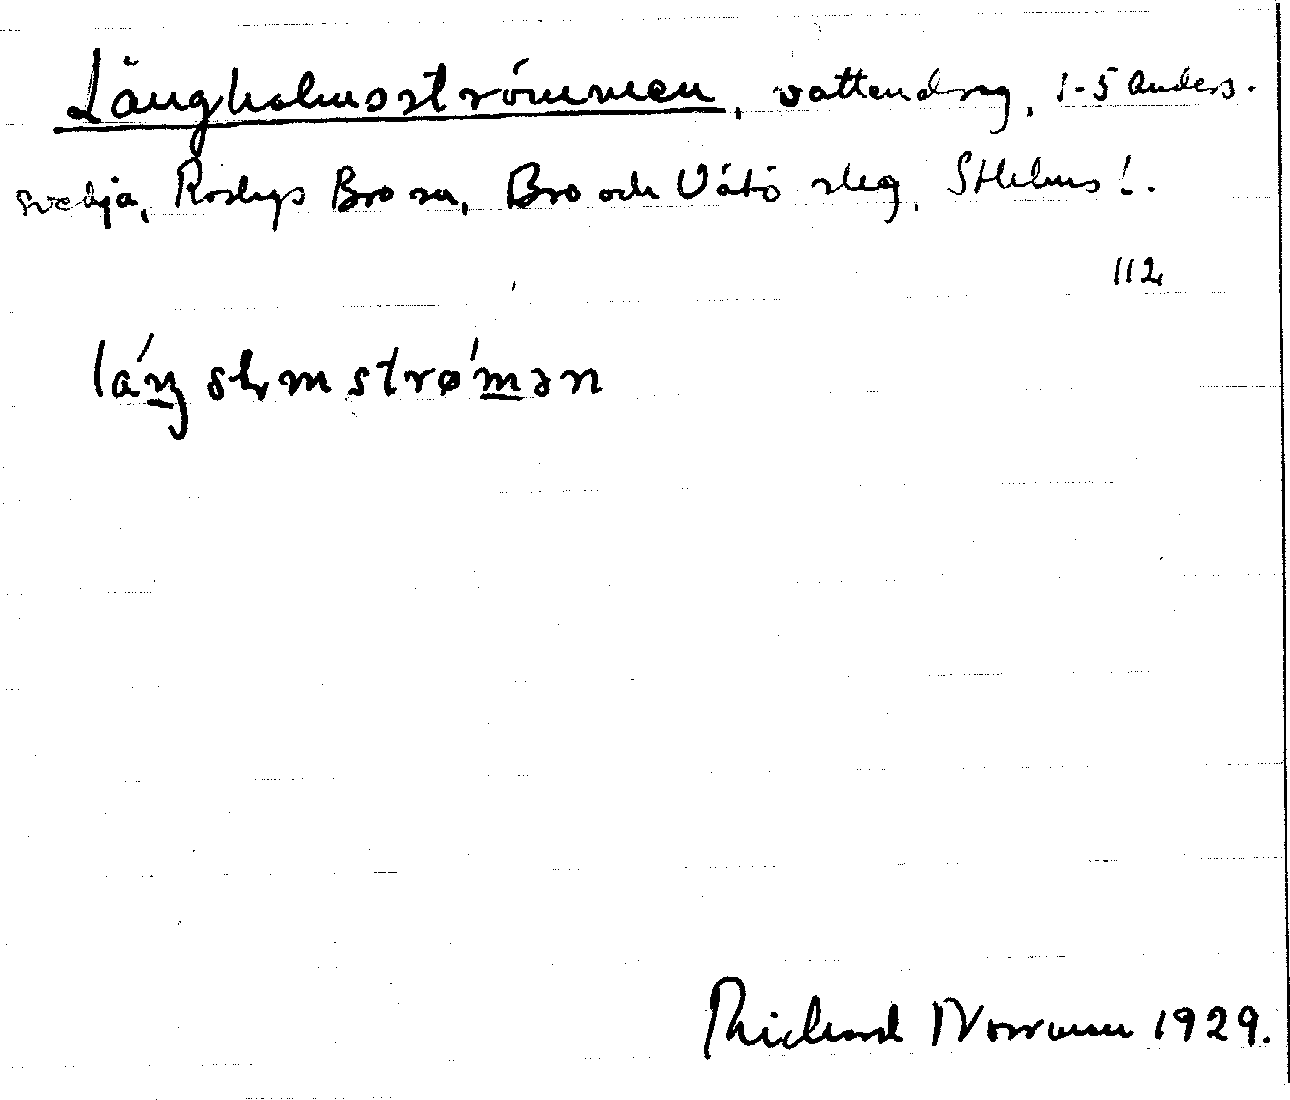 Långholmsströmmen, vattendrag, 1-5 Anders-
svedja, Roslags Bro sn, Bro och Vätö slg, Sthlms l.
112
Richard Norrman 1929.